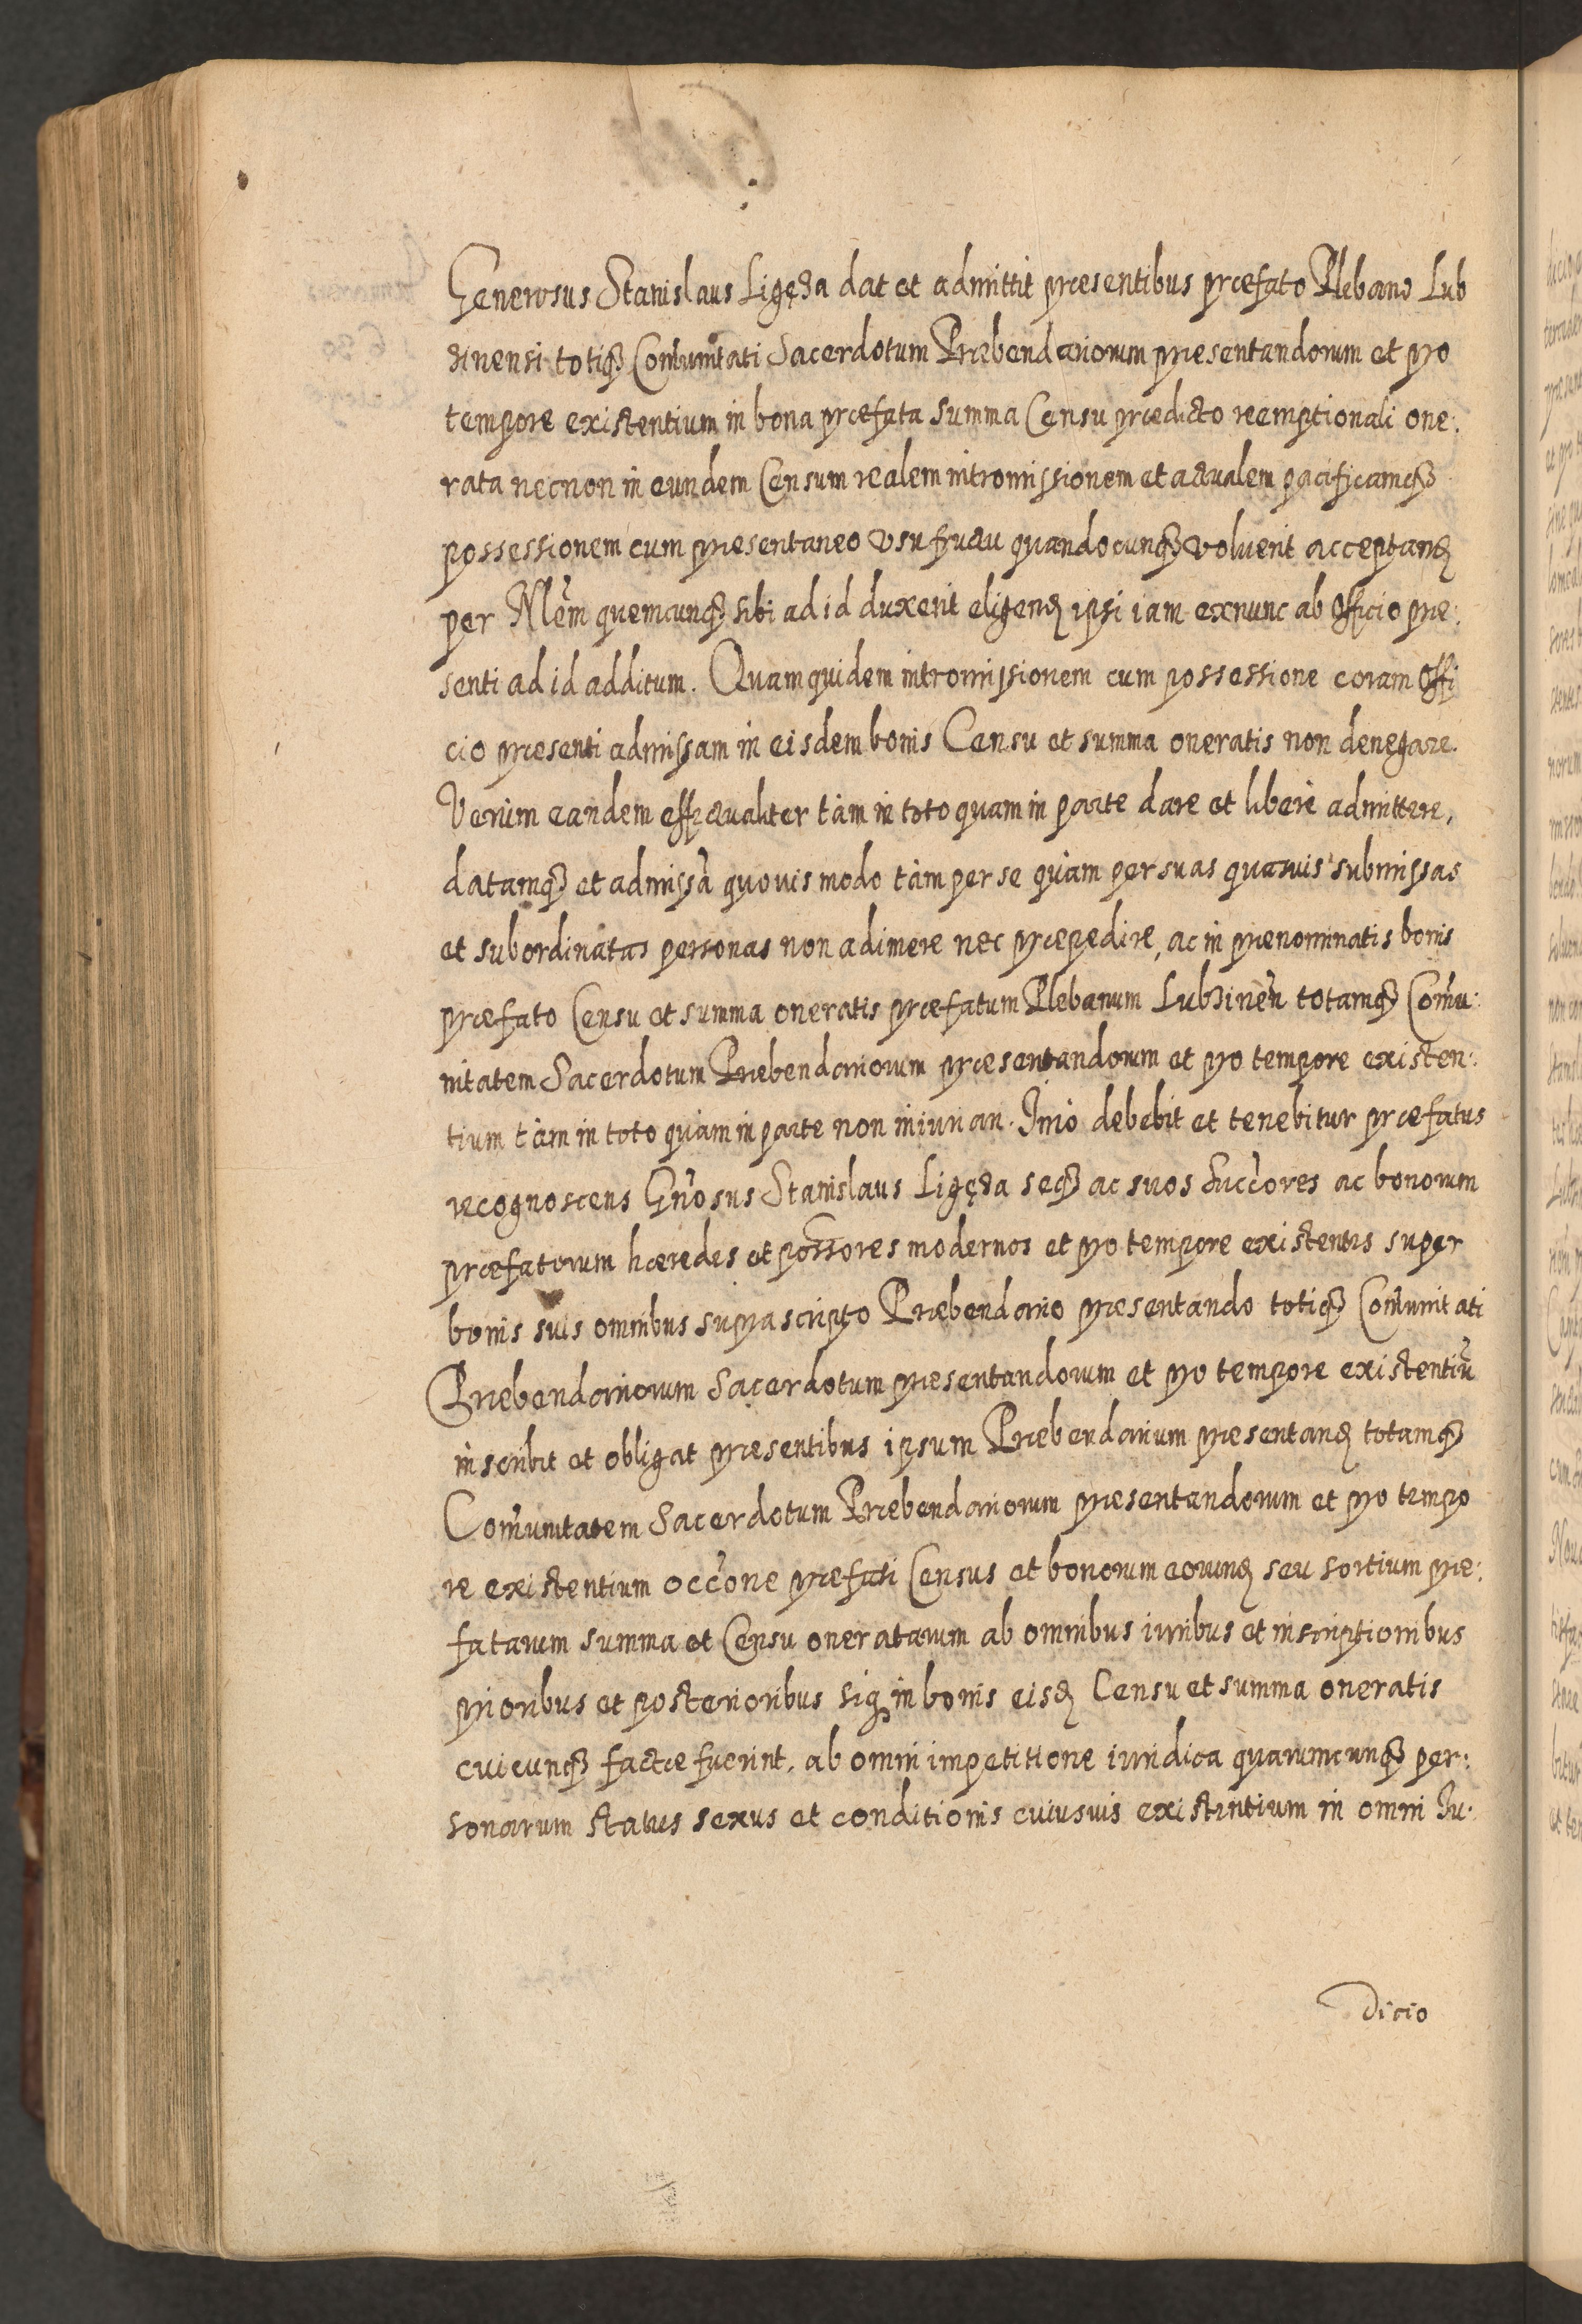 Generosus Stanislaus Ligęza dat et admittit præsentibus præfato Plebano Lub
zinensi totiq3 Com̃unitati Sacerdotum Præbendariorum præsentandorum et pro
tempore existentium in bona præfata summa Censu prædicto reemptionali one:
rata necnon in eundem Censum realem intromissionem et actualem pacificamq3
possessionem cum præsentaneo vsufructu quandocunq3 voluerit acceptand
per Mlem̃ quemcunq3 sibi ad id duxerit eligend ipsi iam exnunc ab Officio præ:
senti ad id additum. Quam quidem intromissionem cum possessione coram Offi
cio præsenti admissam in eisdem bonis Censu et summa oneratis non denegare.
Verùm eandem effectualiter tàm in toto quam in parte dare et liberè admittere,
datamq3 et admissã quovis modo tàm per se quàm per suas quasuis submissas
et subordinatas personas non adimere nec præpedire, ac in prænominatis bonis
præfato Censu et summa oneratis præfatum Plebanum Lubzineñ totamq3 Com̃u:
nitatem Sacerdotum Præbendariorum præsentandorum et pro tempore existen:
tium tàm in toto quàm in parte non iniurian. Imò debebit et tenebitur præfatus
recognoscens Gñosus Stanislaus Ligęza seq3 ac suos Succ̃ores ac bonorum
præfatorum hæredes et poss̃ores modernos et pro tempore existentes super
bonis suis omnibus suprascripto Præbendario præsentando totiq3 Com̃unitati
Præbendariorum Sacerdotum præsentandorum et pro tempore existentiũ
inscribit et obligat præsentibus ipsum Præbendarium præsentand totamq3
Com̃unitatem Sacerdotum Præbendariorum præsentandorum et pro tempo
re existentium occ̃one præfati Census et bonorum eorund seu sortium præ:
fatarum summa et Censu oneratarum ab omnibus iuribus et inscriptionibus
prioribus et posterioribus siq in bonis eisd Censu et summa oneratis
cuicunq3 factæ fuerint, ab omni impetitione iuridica quarumcunq3 per:
sonarum status sexus et conditionis cuiusuis existentium in omni Iu:
dicio